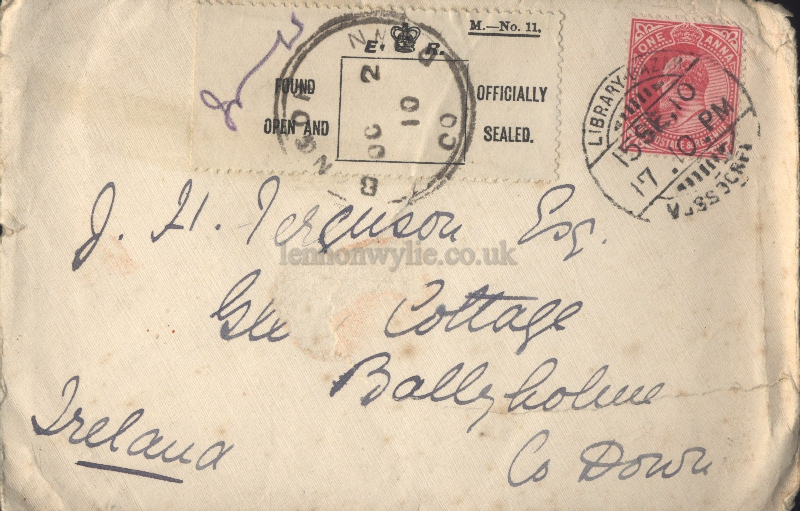 M.—No. 11.
E. R.
FOUND OPEN AND
OFFICIALLY SEALED.
BANGOR
CO
OC 2
10
ONE ANNA
POSTAGE & REVENUE
LIBRARY
10
PM
17
J. H. Ferguson Esq.
lennonwylie.co.uk
Cottage
Ballyholme
Co Down
Ireland